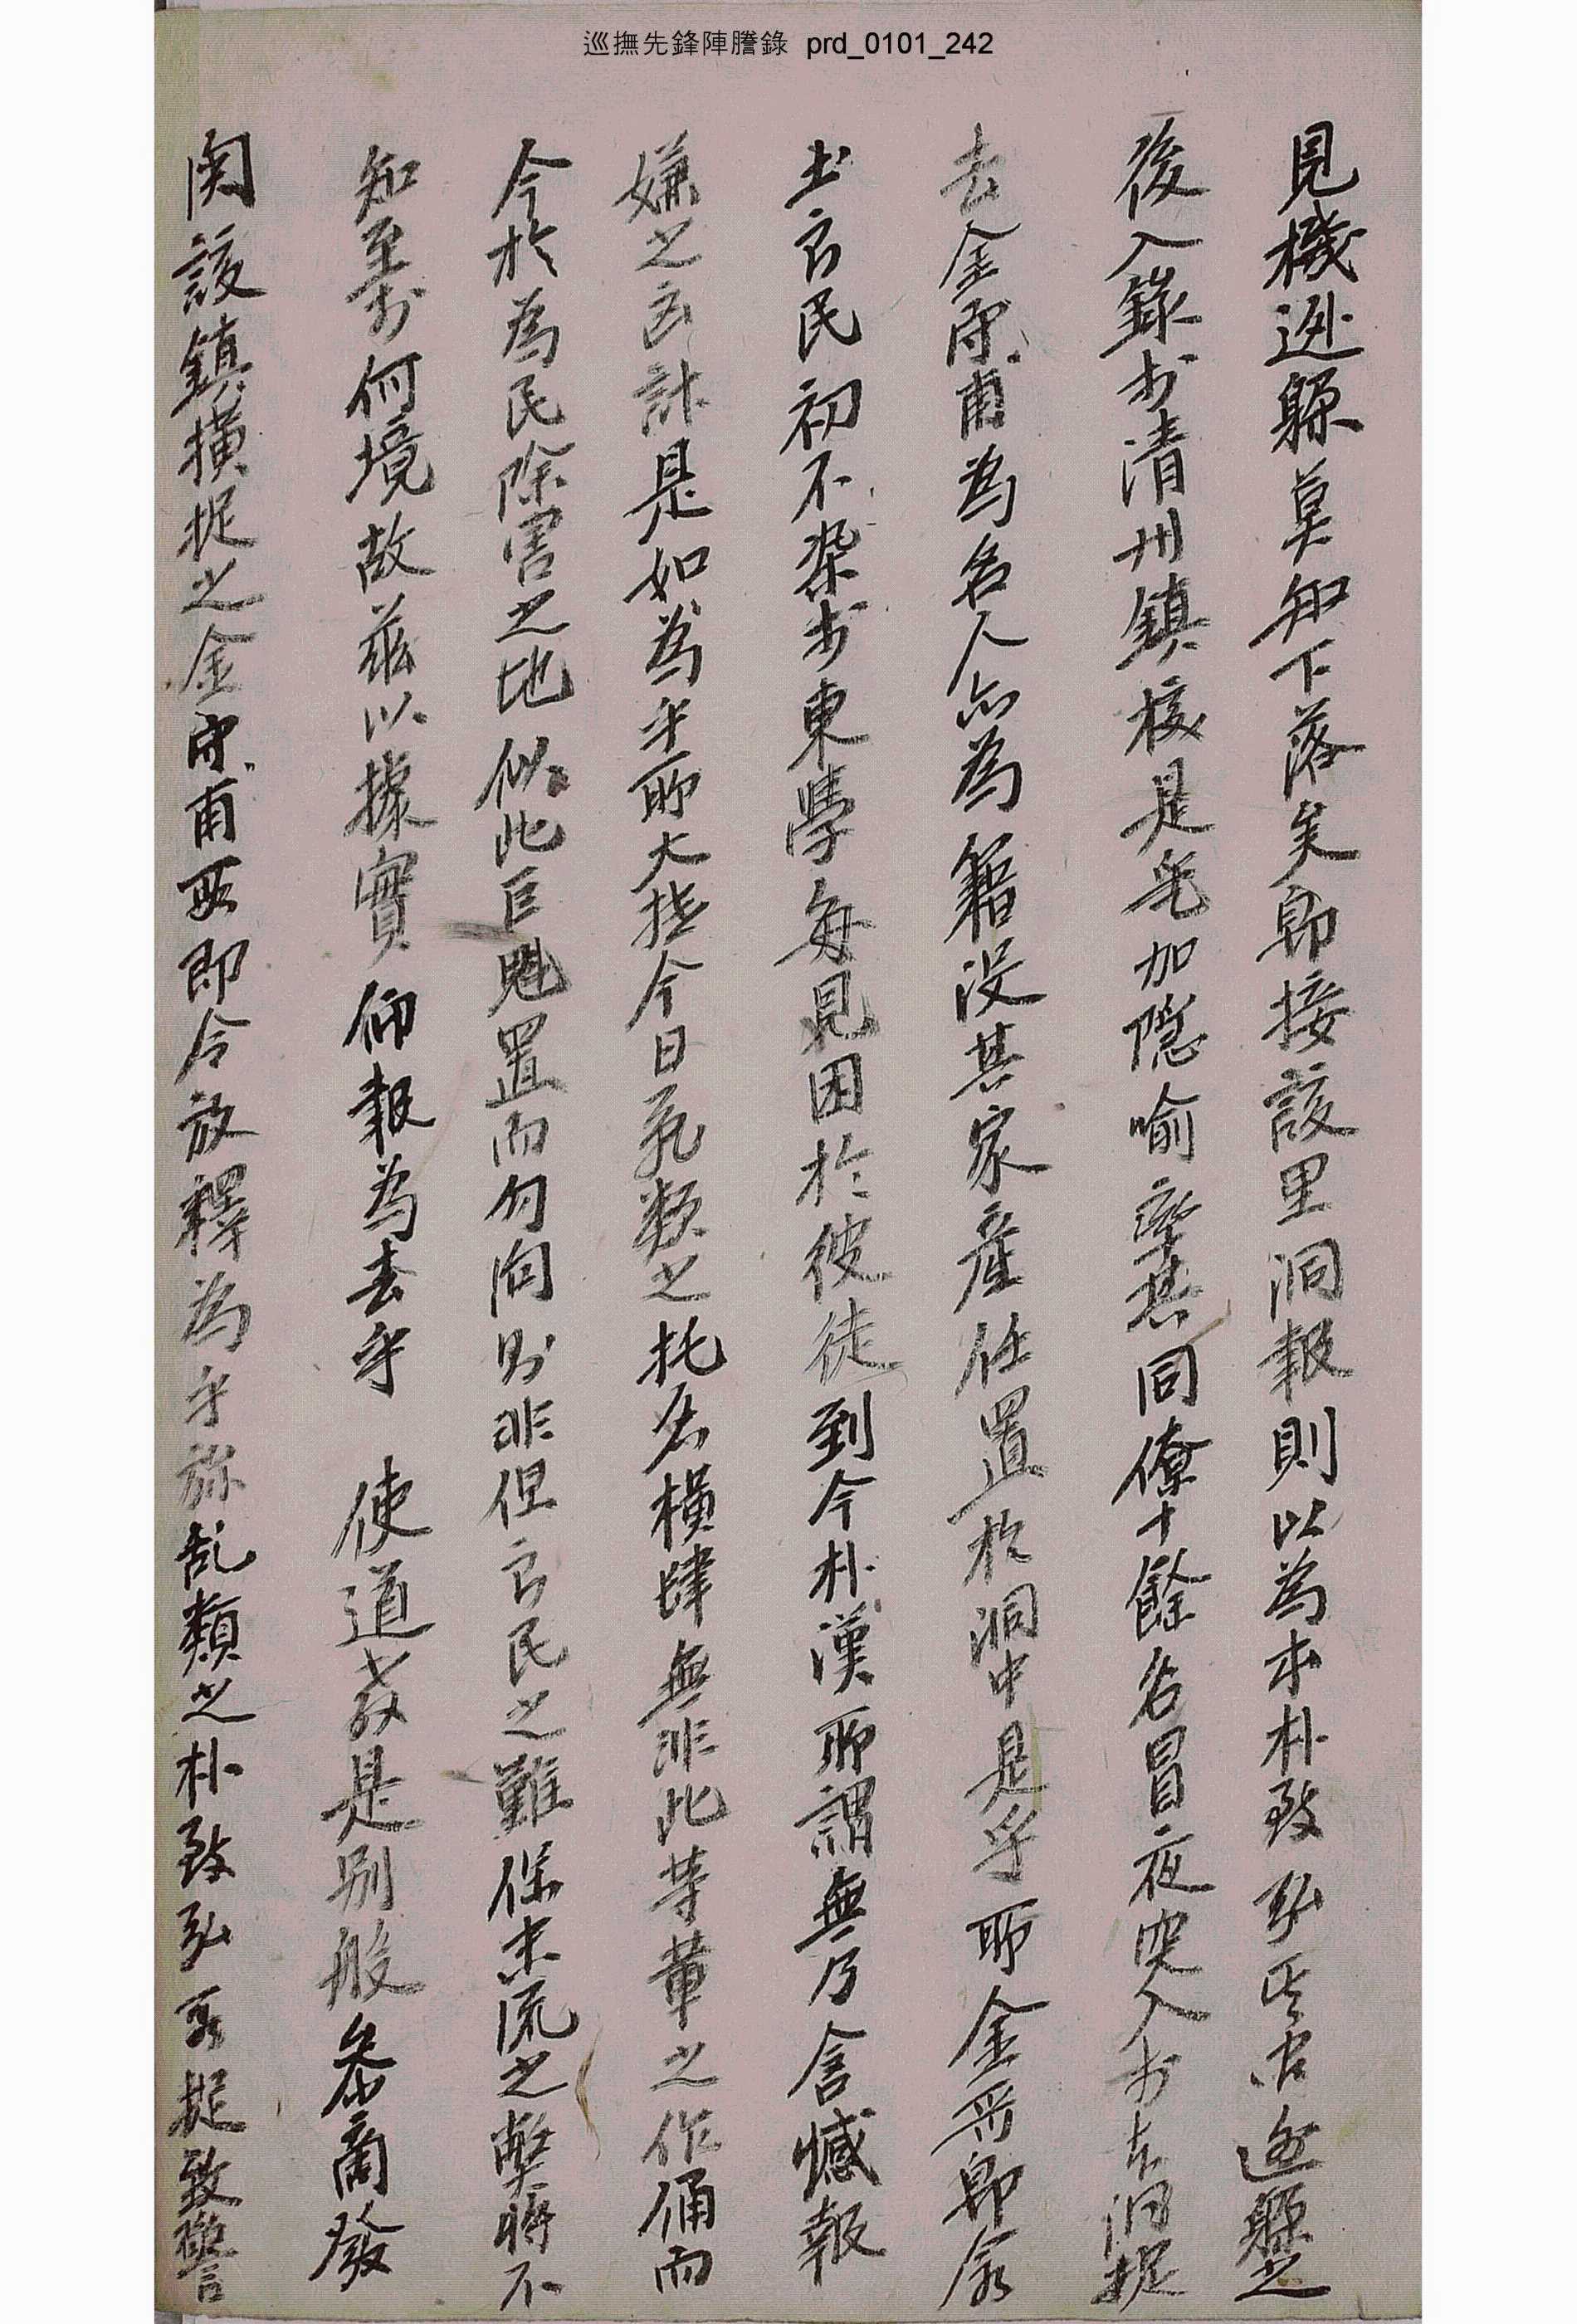 巡撫先鋒陣謄錄 prd_0101_242
見機逃躱莫知下落矣卽接該里洞報則以爲本朴致弘逃躱之
後入錄於淸州鎭校是乎加隱喻率其同僚十餘名冒夜突入於本洞捉
去金甫爲名人亦爲籍沒其家產任置於洞中是乎所金哥卽
士官民初不染於東學每見困於彼徒到今朴漢所謂無乃含憾報
嫌之計是如爲乎所大抵今日乱類之托名橫肆無非此等輩之作俑而
今於爲民除害之地似此巨魁置而勿問則非但官民之難保末流之弊將不
知至於何境故茲以據實仰報爲去乎 使道敎是別般叅商發
関該鎭橫捉之金甫段卽令放釋爲乎旀乱類之朴致弘段捉致警